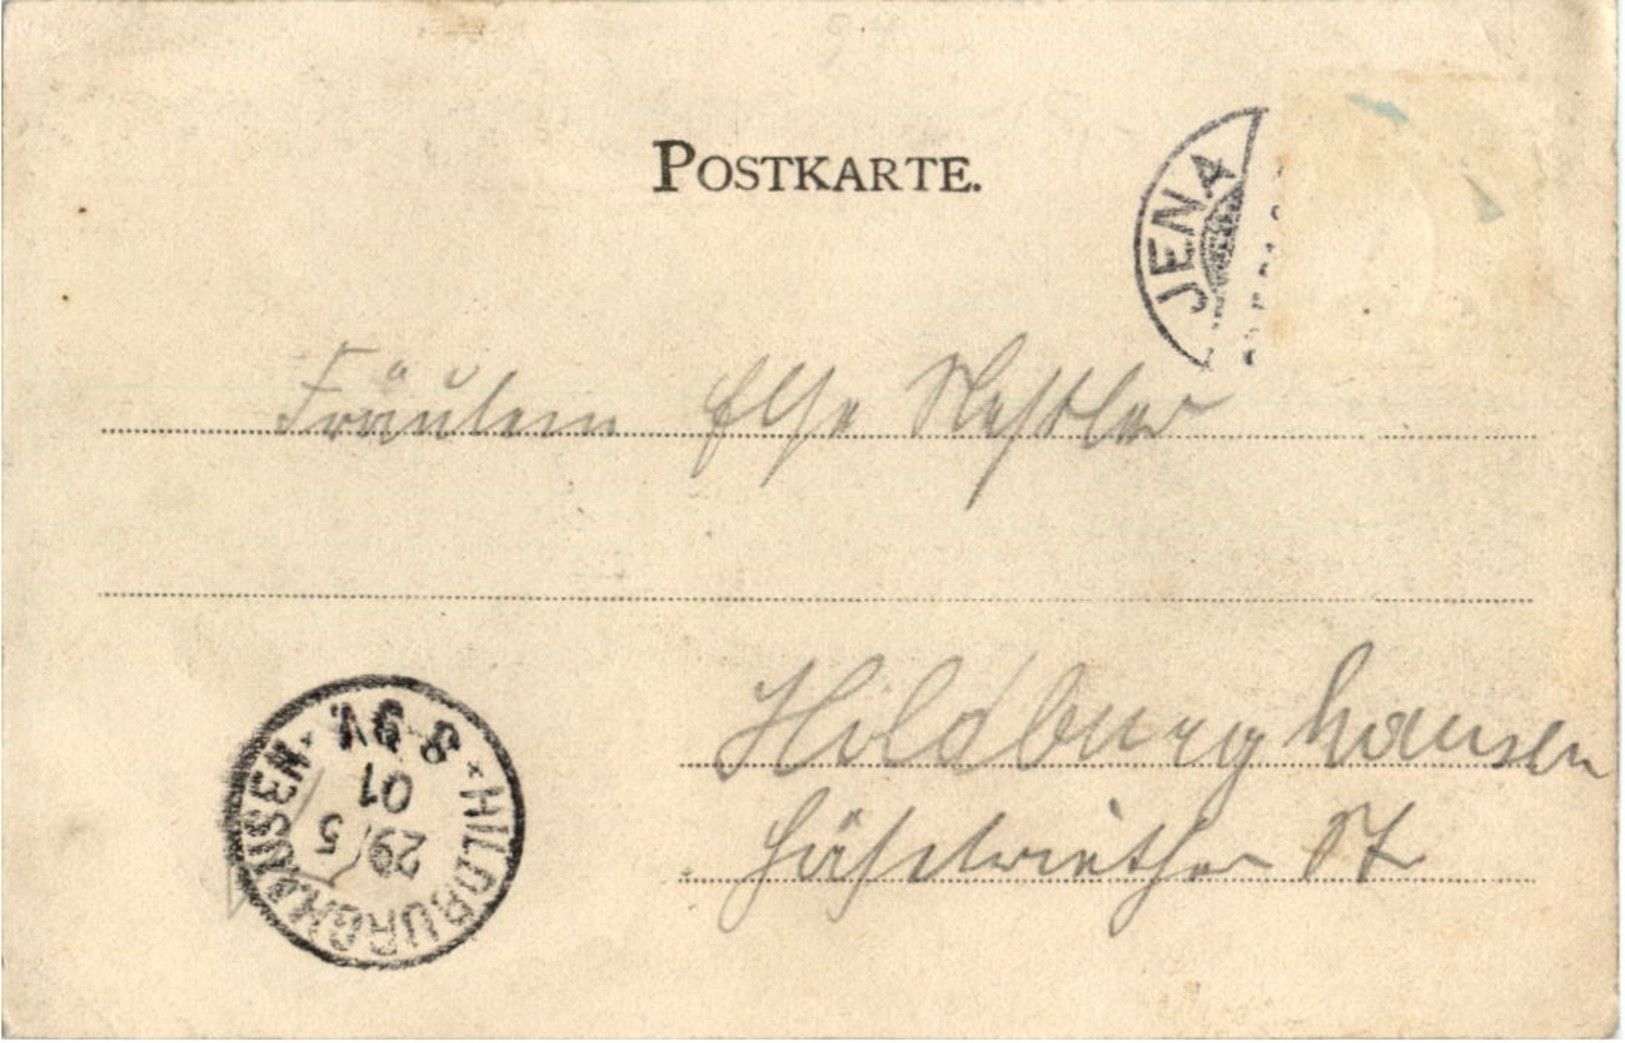 POSTKARTE.
JENA
Fräulein Else Nestler
Hildburghausen
Häselriether St
HILDBURGHAUSEN
29 5
01
8-9V.